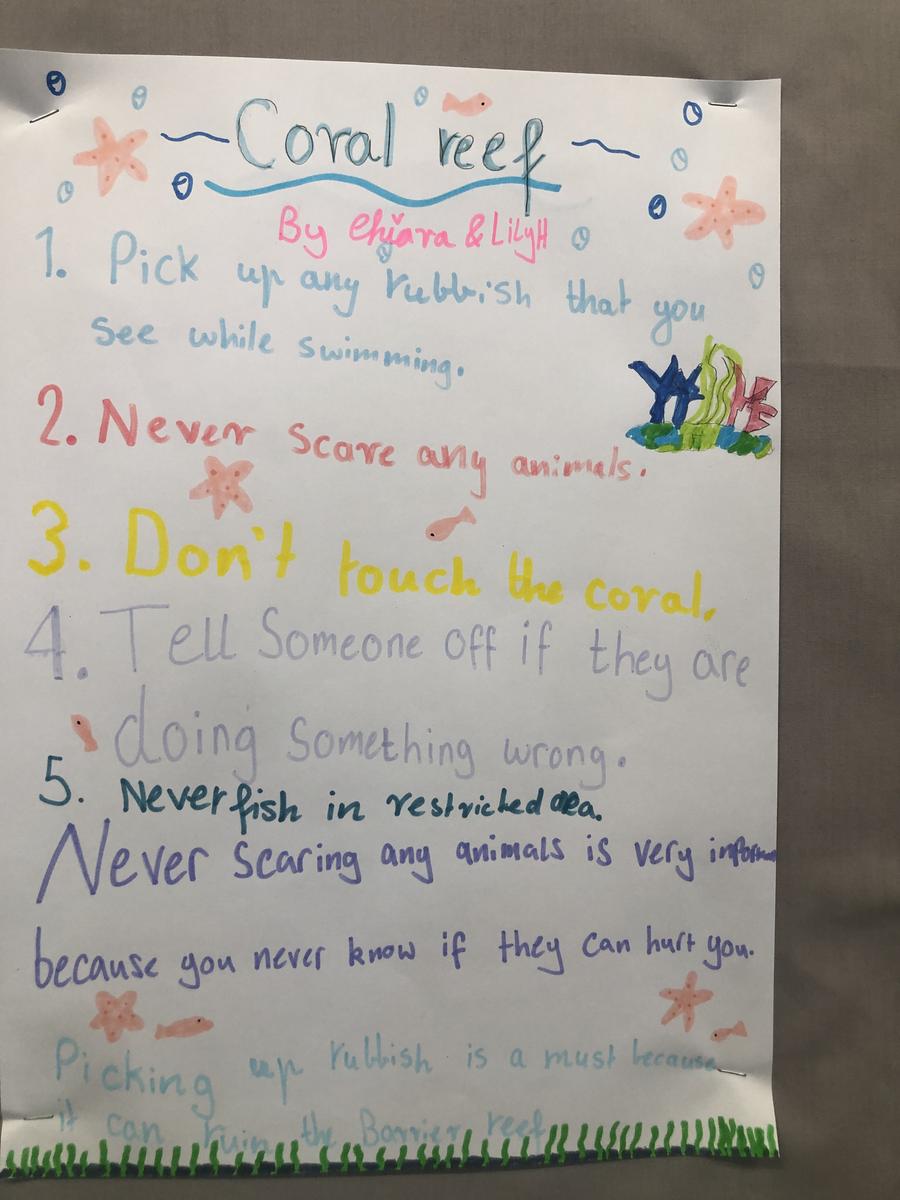 Coral reef
By Chiara & LilyH
1. Pick up any rubbish that you
see while swimming.
2. Never scare any animals.
3. Don't touch the coral.
4. Tell Someone off if they are
doing something wrong.
5. Never fish in restricted area.
Never scaring any animals is very
because you never know if they can hurt you.
Picking up rubbish is a must because
it can ruin the Barrier reef